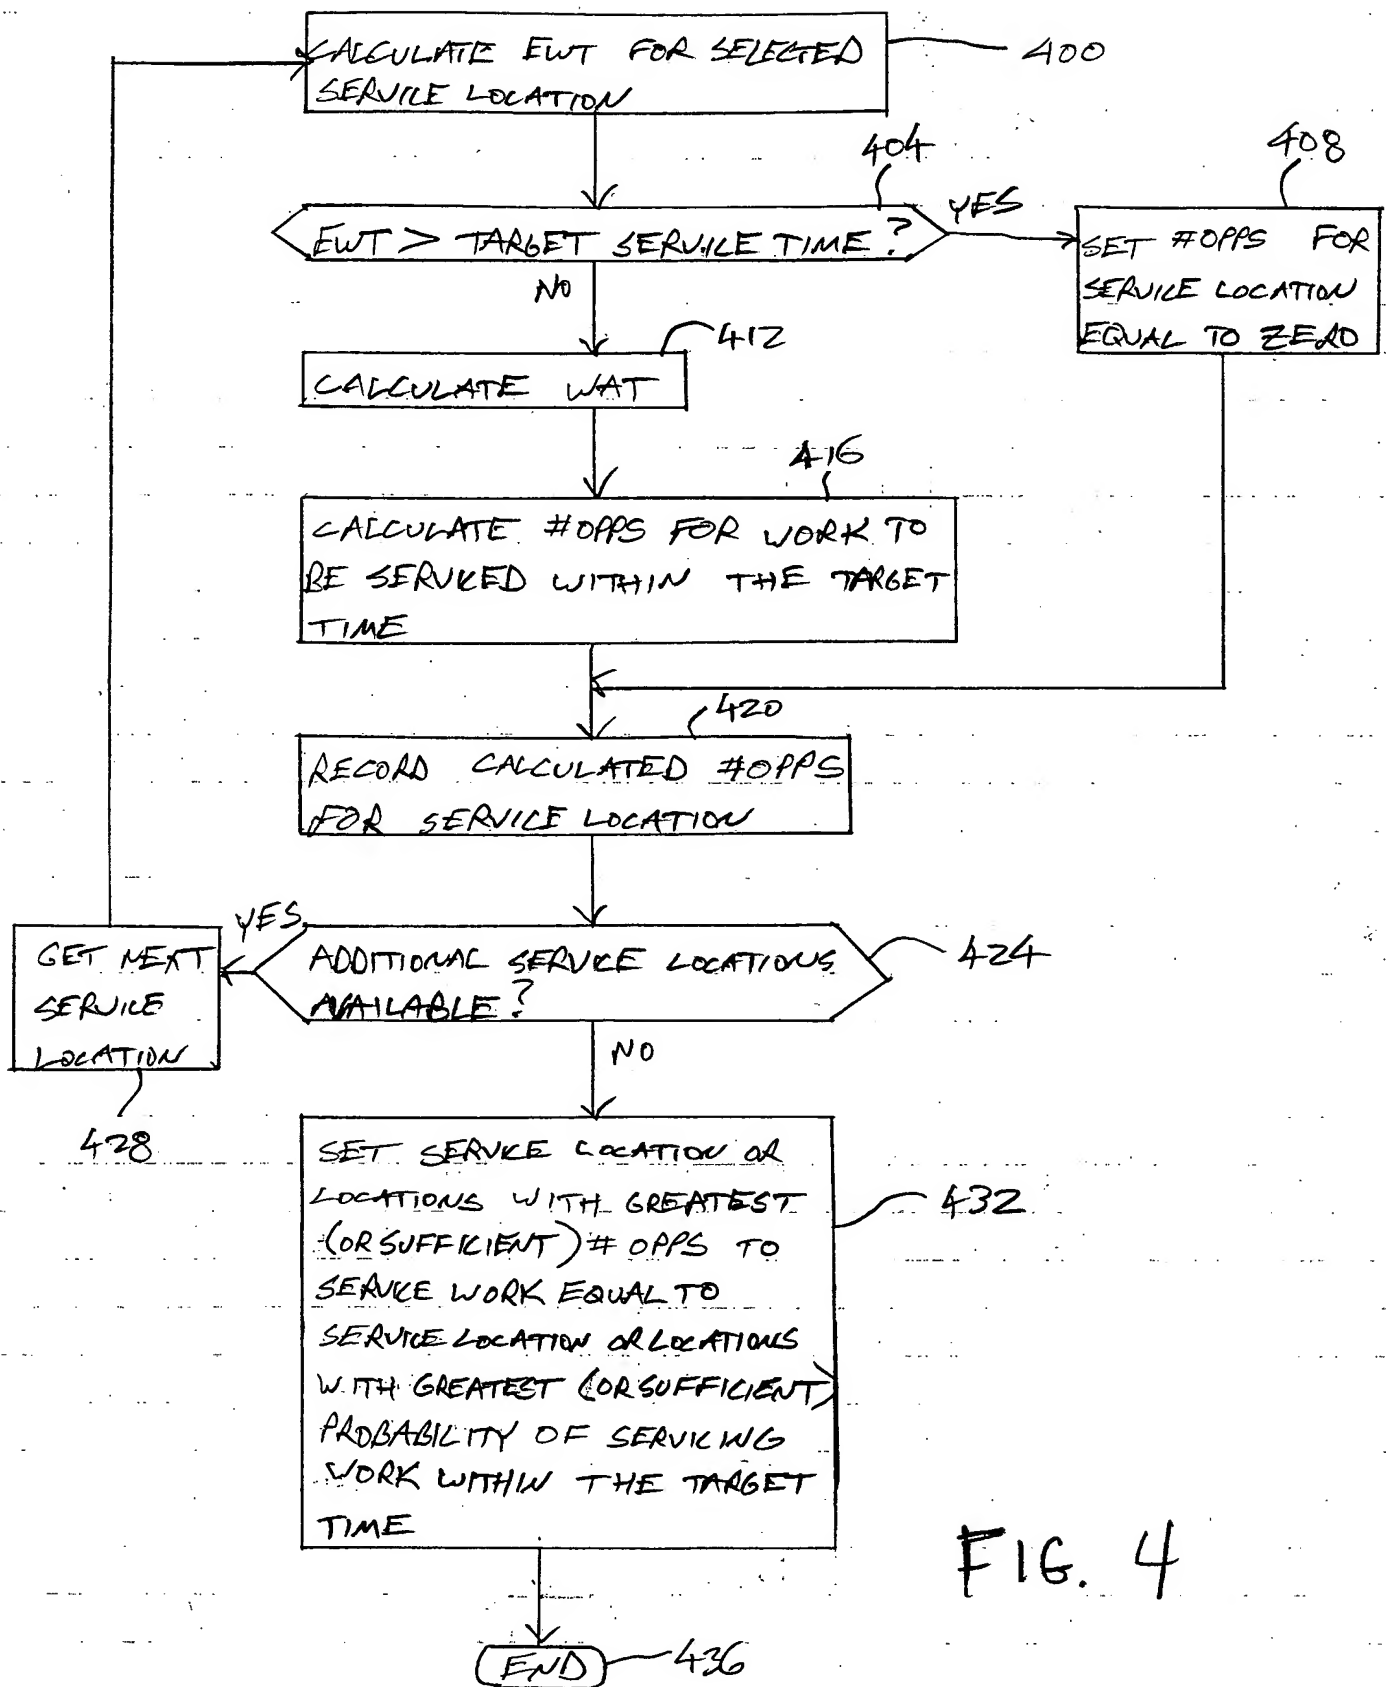 CALCULATE EWT FOR SELECTED
SERVICE LOCATION
400
404
408
EWT > TARGET SERVICE TIME?
YES
SET #OPPS FOR
SERVICE LOCATION
EQUAL TO ZERO
NO
412
CALCULATE WAT
416
CALCULATE #OPPS FOR WORK TO
BE SERVICED WITHIN THE TARGET
TIME
420
RECORD CALCULATED #OPPS
FOR SERVICE LOCATION
YES
GET NEXT
SERVICE
LOCATION
428
ADDITIONAL SERVICE LOCATIONS
AVAILABLE?
424
NO
SET SERVICE LOCATION OR
LOCATIONS WITH GREATEST
(OR SUFFICIENT) # OPPS TO
SERVICE WORK EQUAL TO
SERVICE LOCATION OR LOCATIONS
WITH GREATEST (OR SUFFICIENT)
PROBABILITY OF SERVICING
WORK WITHIN THE TARGET
TIME
432
END
436
FIG. 4